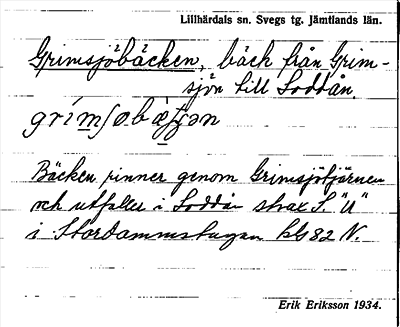 Lillhärdals sn. Svegs tg. Jämtlands län.
Grimsjöbäcken, bäck från Grim-
sjön till Loddån.
Bäcken rinner genom Grimsjötjärnen
och utfaller i Loddån strax S. "U"
i Stordammstugan kbl 82 N.
Erik Eriksson 1934.